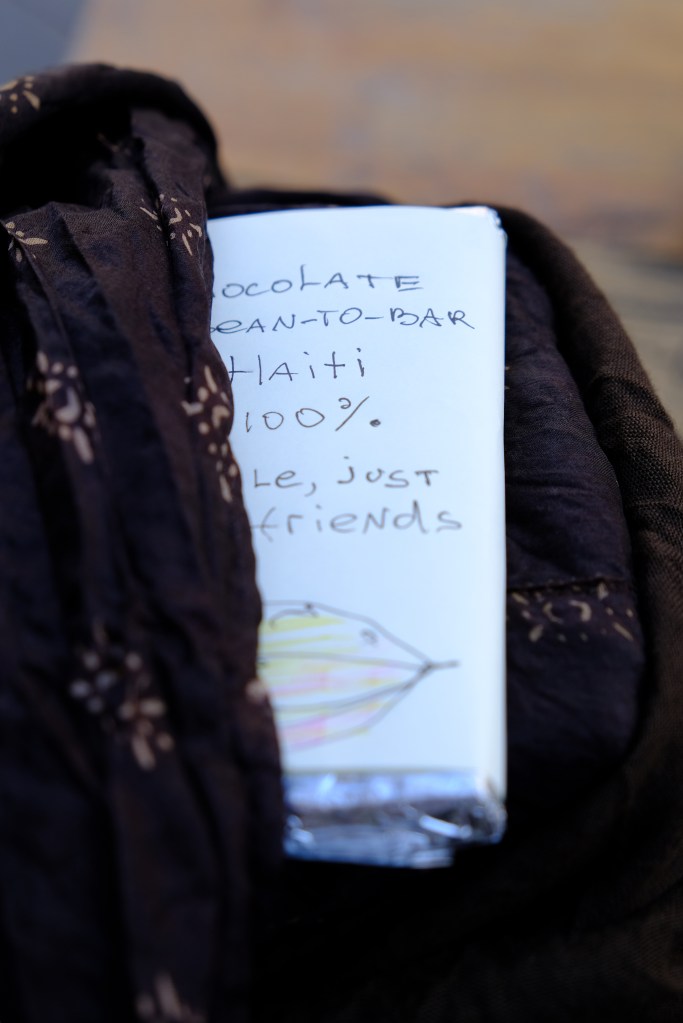 ocolate
ean-to-bar
Haiti
100%.
le, just
friends